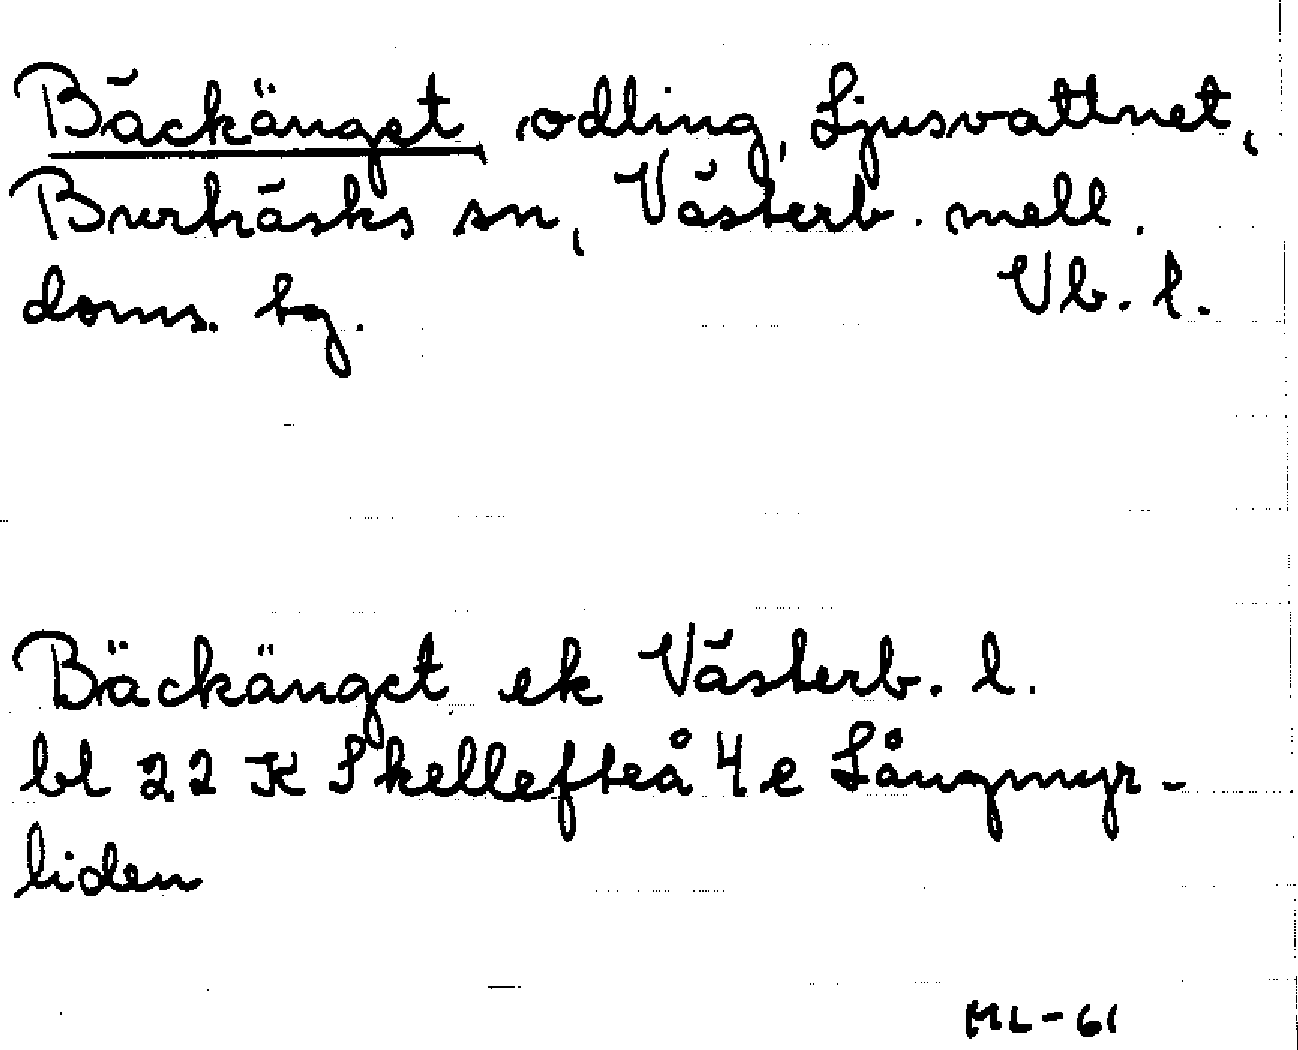 Bäckänget, odling, Ljusvattnet,
Burträsks sn, Västerb. mell.
doms. hg. Vb. l.
Bäckänget ek Västerb. l.
bl 22 K Skellefteå 4 e Långmyr-
liden
ML-61